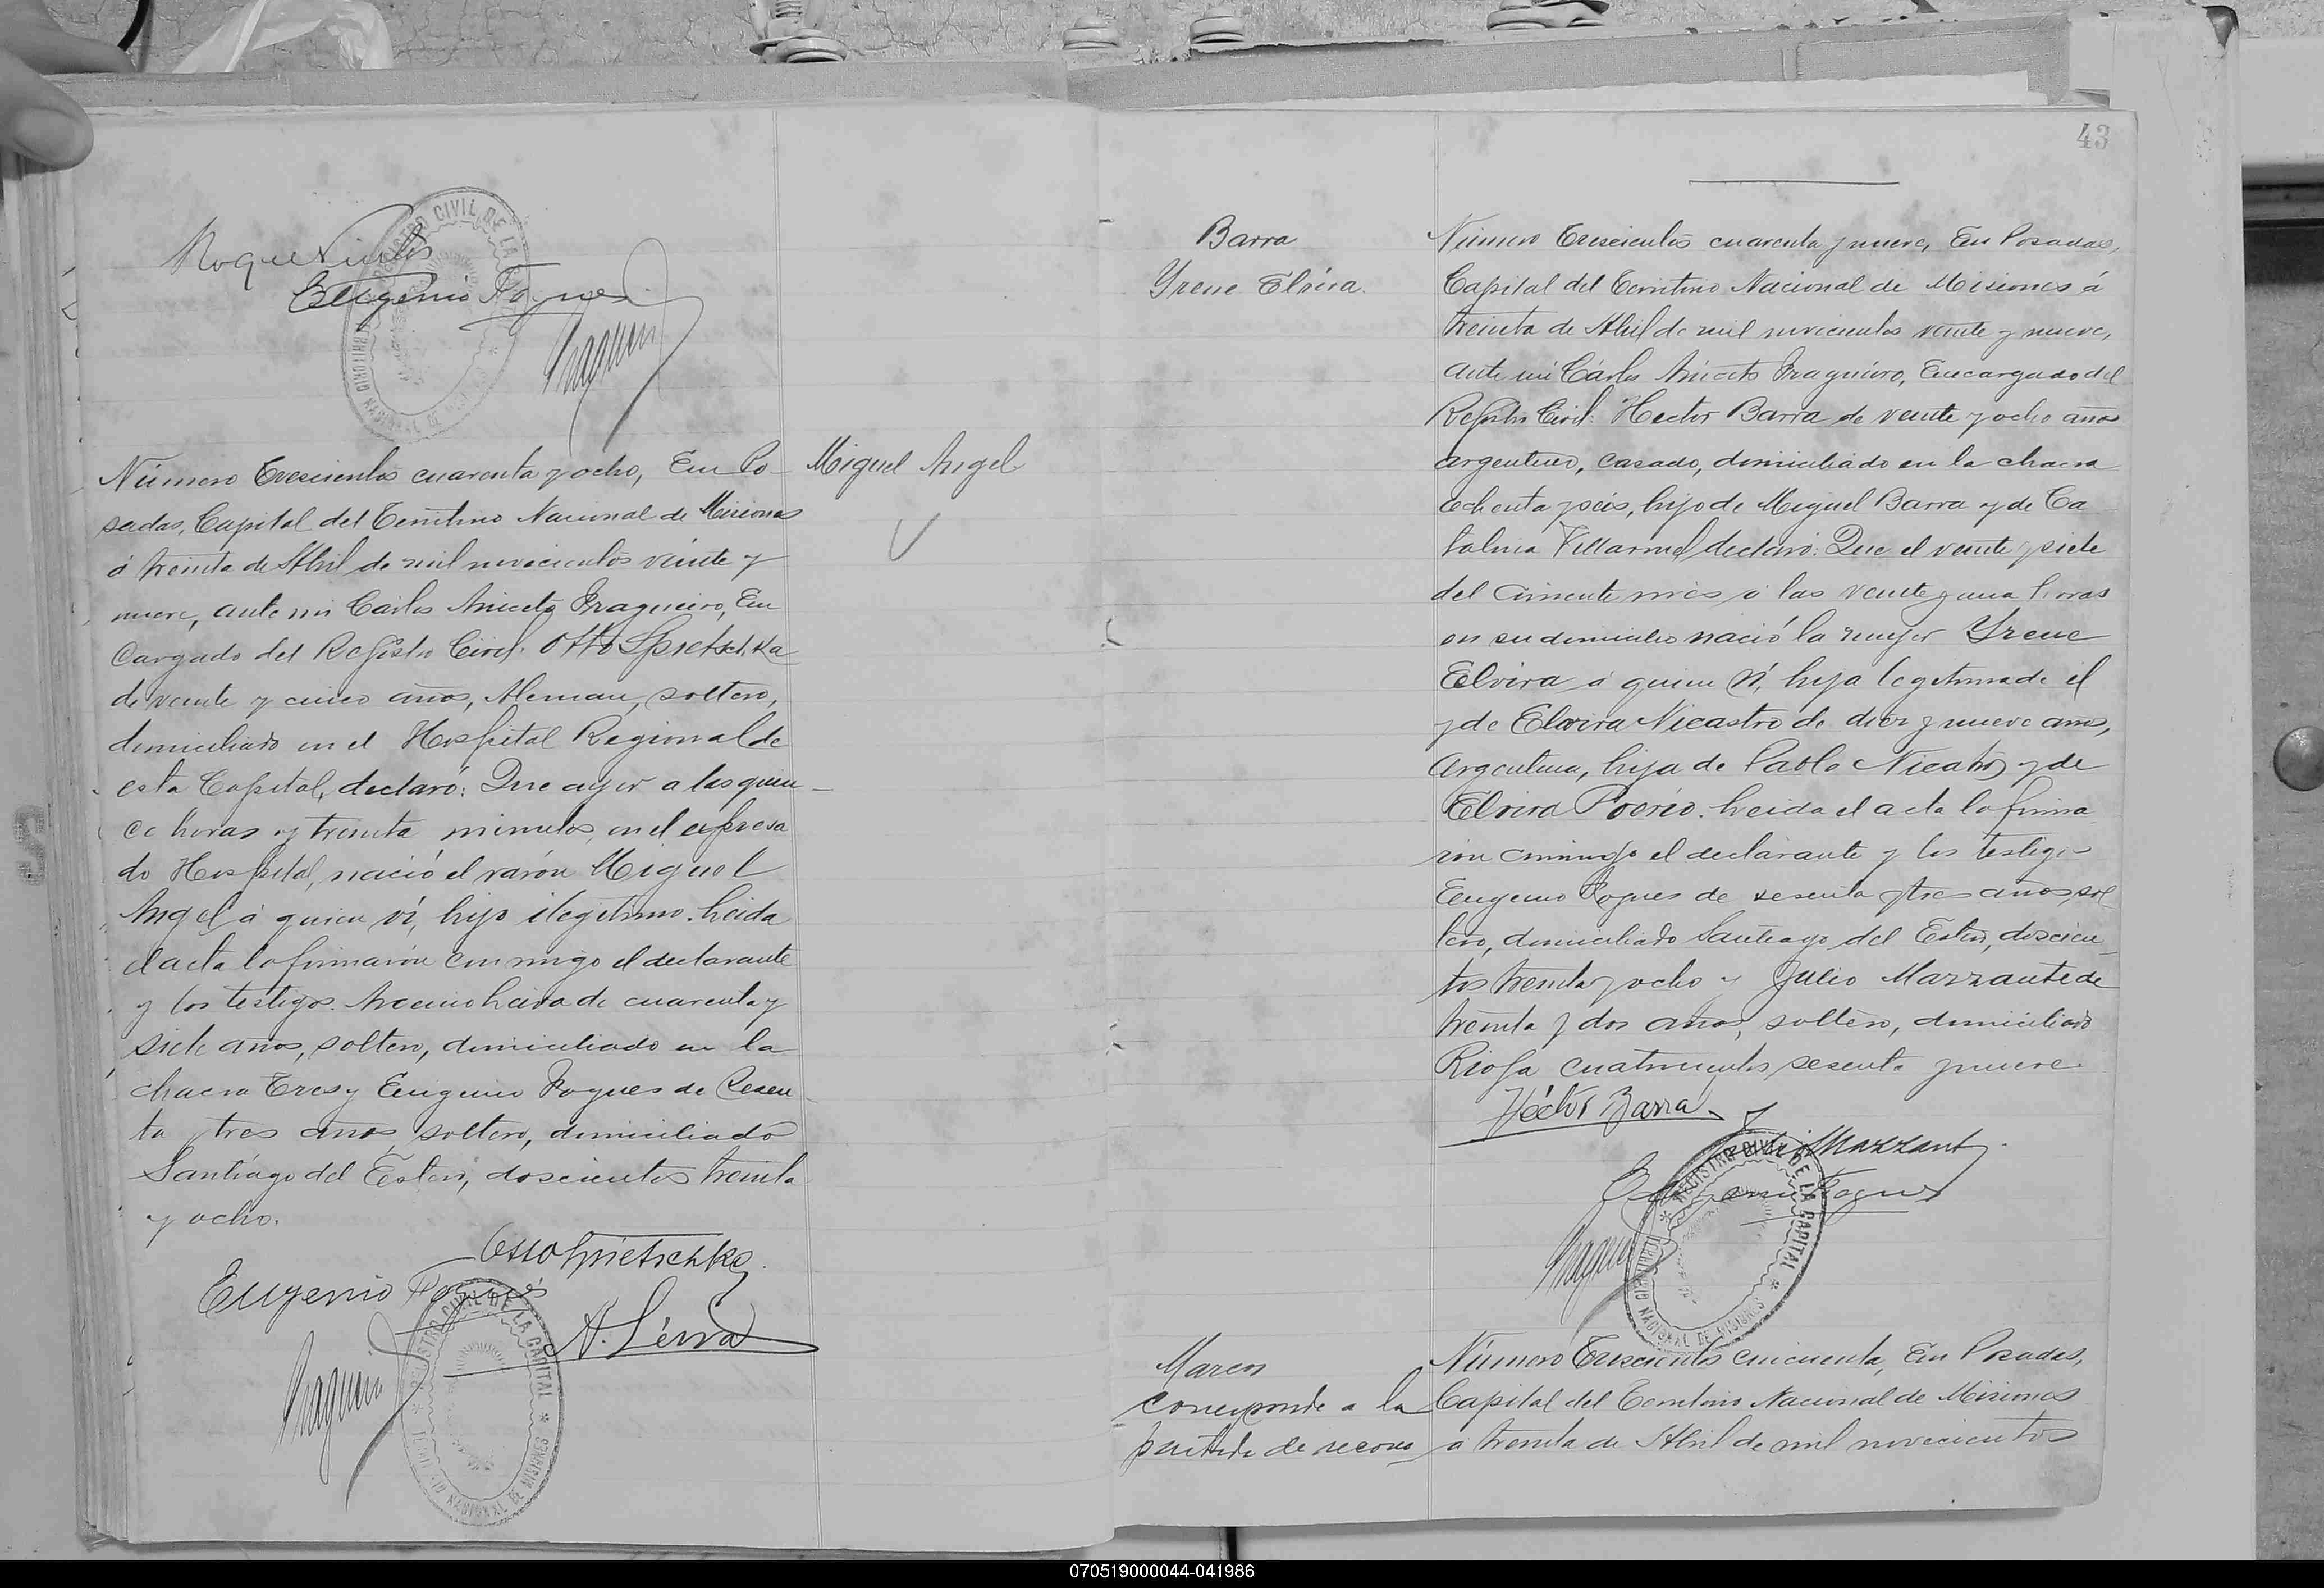 Eugenio Fogues
Número Trescientos cuarenta y ocho, En Po-
sadas, Capital del Territorio Nacional de Misiones
á treinta de Abril de mil novecientos veinte y
nueve, ante mi Cárlos Aniceto Fragueiro, En
cargado del Registro Civil: Otto Sprietschka
de veinte y cinco años, Aleman, soltero,
domiciliado en el Hospital Regional de
esta Capital, declaró: Que ayer a las quin-
ce horas y treinta minutos, en el expresa
do Hospital, nació el varón Miguel
Angel á quien ví, hijo ilegitimo. Leida
el acta la firmaron conmigo el declarante
y los testigos. de cuarenta y
siete años, soltero, domiciliado en la
chacra Tres y Eugenio Fogues de Sesen-
ta y tres años, soltero, domiciliado
Santiago del Estero, doscientos treinta
y ocho.
Otto Sprietschka
Eugenio Fogués
Miguel Angel
43
Barra
Yrene Elvira.
Número Trescientos cuarenta y nueve, En Posadas,
Capital del Territorio Nacional de Misiones á
treinta de Abril de mil novecientos veinte y nueve,
ante mi Cárlos Aniceto Fragueiro, Encargado del
Registro Civil: Hector Barra de veinte y ocho años
argentino, casado, domiciliado en la chacra
ochenta y seis, hijo de Miguel Barra y de Ca
talina Villarruel declaró: Que el veinte y siete
del corriente mes á las veinte y una horas
en su domicilio nació la mujer Yrene
Elvira á quien ví, hija legitima de él
y de Elvira Nicastro de diez y nueve años,
Argentina, hija de Pablo Nicastro y de
Elvira Poerio. Leida el acta la firma
ron conmigo el declarante y los testigos
Eugenio Fogues de sesenta y tres años, sol
tero, domiciliado Santiago del Estero, doscien-
tos treinta y ocho y Julio Mazzante de
treinta y dos años, soltero, domiciliado
Rioja cuatrocientos sesenta y nueve
Héctor Barra
REGISTRO CIVIL DE LA CAPITAL
TERRITORIO NACIONAL DE MISIONES
Número Trescientos cincuenta, En Posadas,
Capital del Territorio Nacional de Misiones
á treinta de Abril de mil novecientos
Marcos
corresponde a la
partida de recono
070519000044-041986